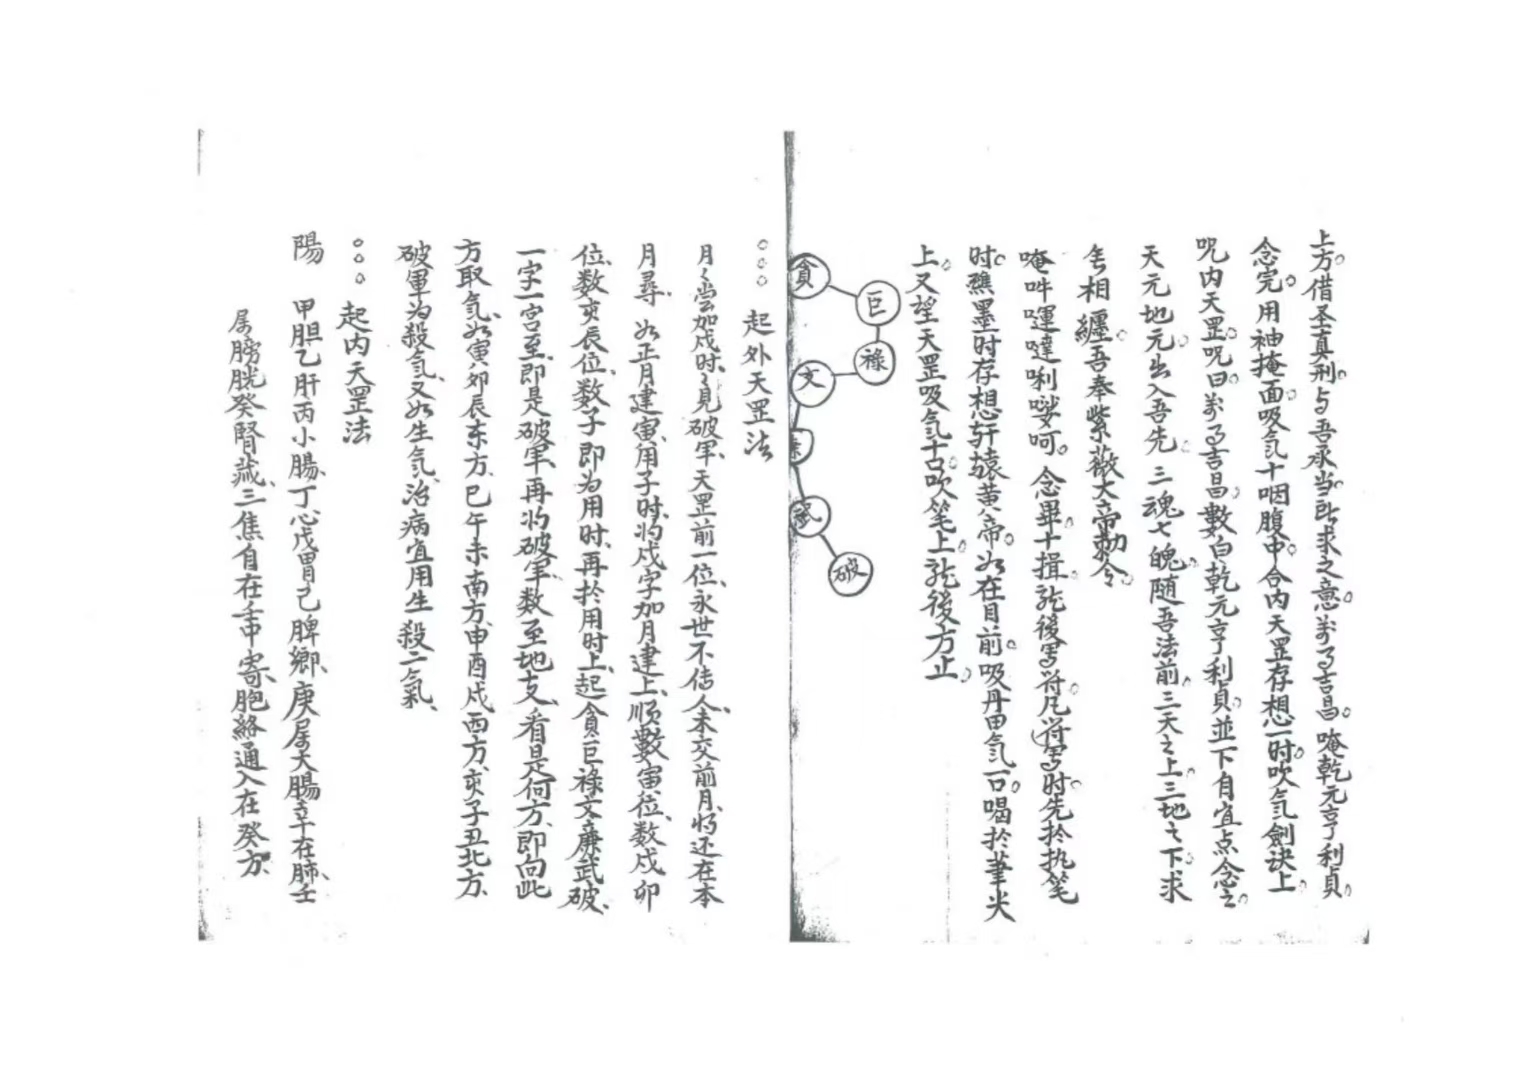 上方。借圣真刑。与吾承当。所求之意。万事吉昌。唵乾元亨利貞。
念完。用袖掩面。吸気十咽腹中。合内天罡。存想一时。吹気劍訣上
呪内天罡。呪曰。万事吉昌。數白乾元亨利貞。並下自宜点念之。
天元地元。出入吾先。三魂七魄。随吾法前。三天之上。三地之下。求
相纏。吾奉紫薇大帝勅令。
唵吽囉噠唎娑呵。念畢十揖。訖後写符。凡符写时。先於执笔
时。蘸墨时存想轩辕黄帝。如在目前。吸丹田気一口。喝於筆尖
上。又望天罡吸気十口。吹笔上。訖後方止。
貪
巨
禄
文
武
破
起外天罡法
月月尝加戌时时見破軍、天罡前一位、永世不传人、未交前月、将还在本
月尋 如正月建寅、用子时、将戌字加月建上、顺數寅位、数戌卯
位、数亥辰位、数子 即为用时、再於用时上、起貪巨禄文廉武破、
一字一宫至、即是破軍、再将破軍、数至地支、看是何方、即向此
方取気、如寅卯辰东方、巳午未南方、申酉戌西方、亥子丑北方、
破軍为殺気、又如生気、治病宜用生殺二氣、
起内天罡法
陽 甲胆乙肝丙小腸、丁心戊胃己脾鄉、庚属大腸辛在肺、壬
属膀胱癸腎蔵、三焦自在壬中寄、胞絡通入在癸方、